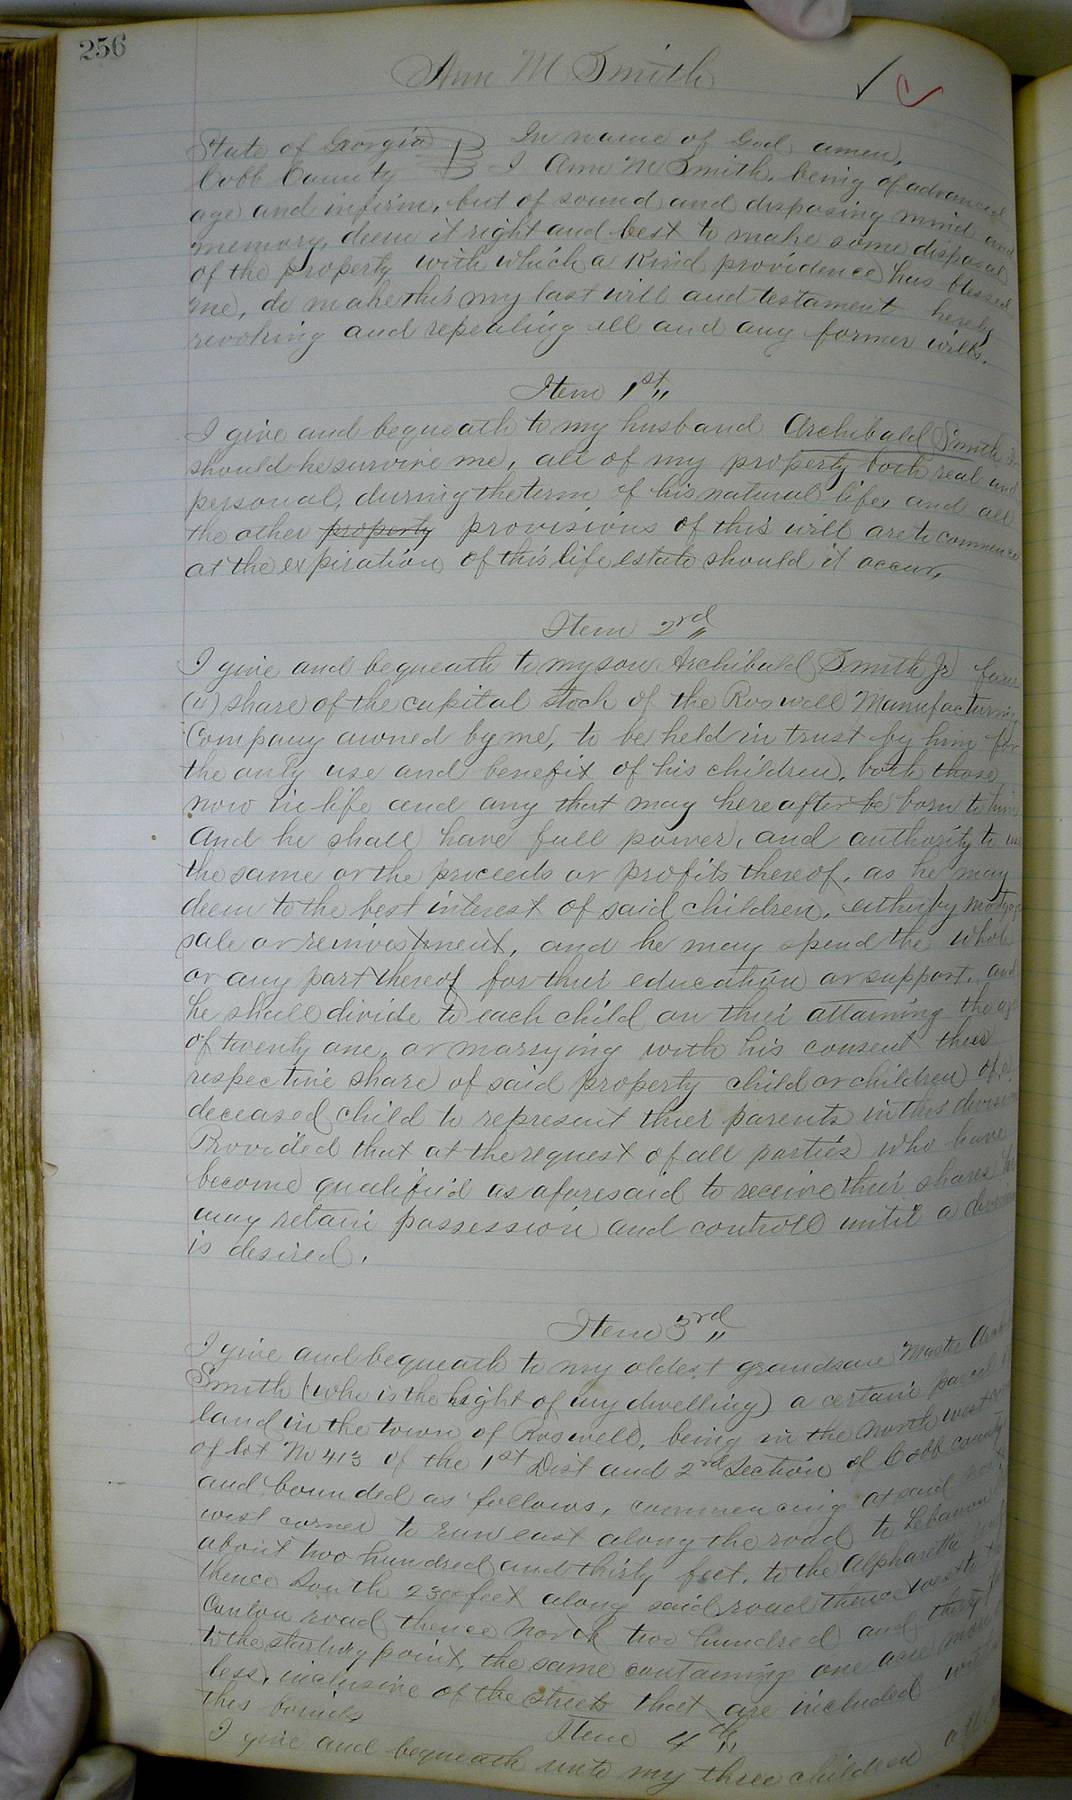 256
Ann M Smith
State of Georgia } In name of God amen,
Cobb County } I Ann M Smith, being of advanced
age and infirm, but of sound and disposing mind and
memory, deem it right and best to make some disposal
of the property with which a Kind providence has blessed
me, do make this my last will and testament hereby
revoking and repealing all and any former wills.
Item 1st "
I give and bequeath to my husband Archibald Smith
should he survive me, all of my property both real and
personal, durring the term of his natural life, and all
the other property provisions of this will are to commence
at the expiration of this life estate should it occur,
Item 2rd "
I give and bequeath to my son Archibald Smith Jr four
(4) share of the capital stock of the Roswell Manufacturing
Company owned by me, to be held in trust by him for
the only use and benefit of his children, both those
now in life and any that may here after be born to him
and he shall have full power, and authority to use
the same or the proceeds or profits thereof, as he may
deem to the best interest of said children, either by mortgage
sale or reinvestment, and he may spend the whole
or any part thereof for thier education or support, and
he shall divide to each child on thier attaining the age
of twenty one, or marrying with his consent thier
respective share of said property child or children of a
deceased child to represent thier parents in this division
Provided that at the request of all parties who have
become qualified as aforesaid to receive their shares he
may retain possession and controll until a division
is desired.
Item 3rd "
I give and bequeath to my oldest grandson Master
Smith (who is the light of my dwelling) a certain parcel
land in the town of Roswell, being in the North west
of lot No 413 of the 1st Dist and 2rd Section of Cobb county
and bounded as follows, commencing at said
west corner to run east along the road to Lebanon
about two hundred and thirty feet, to the Alpharetta
thence South 230 feet along said road thence west to
Canton road thence North two hundred and thirty
to the starting point, the same containing one acre more
less, inclusive of the streets that are included
this bounds
Item 4th "
I give and bequeath unto my three children